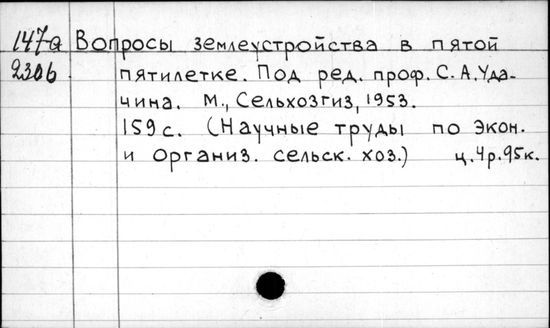 147а Вопросы землеустройства в пятой
230б пятилетке. Под ред. проф. С.А.Уда-
чина. М., Сельхозгиз, 1953.
159 с. (Научные труды по экон.
и организ. сельск. хоз.) ц.4р.95к.